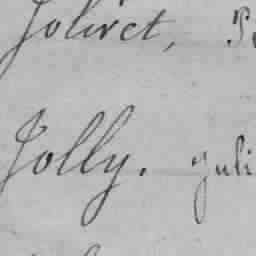 Jolivet,
Jolly. Juli